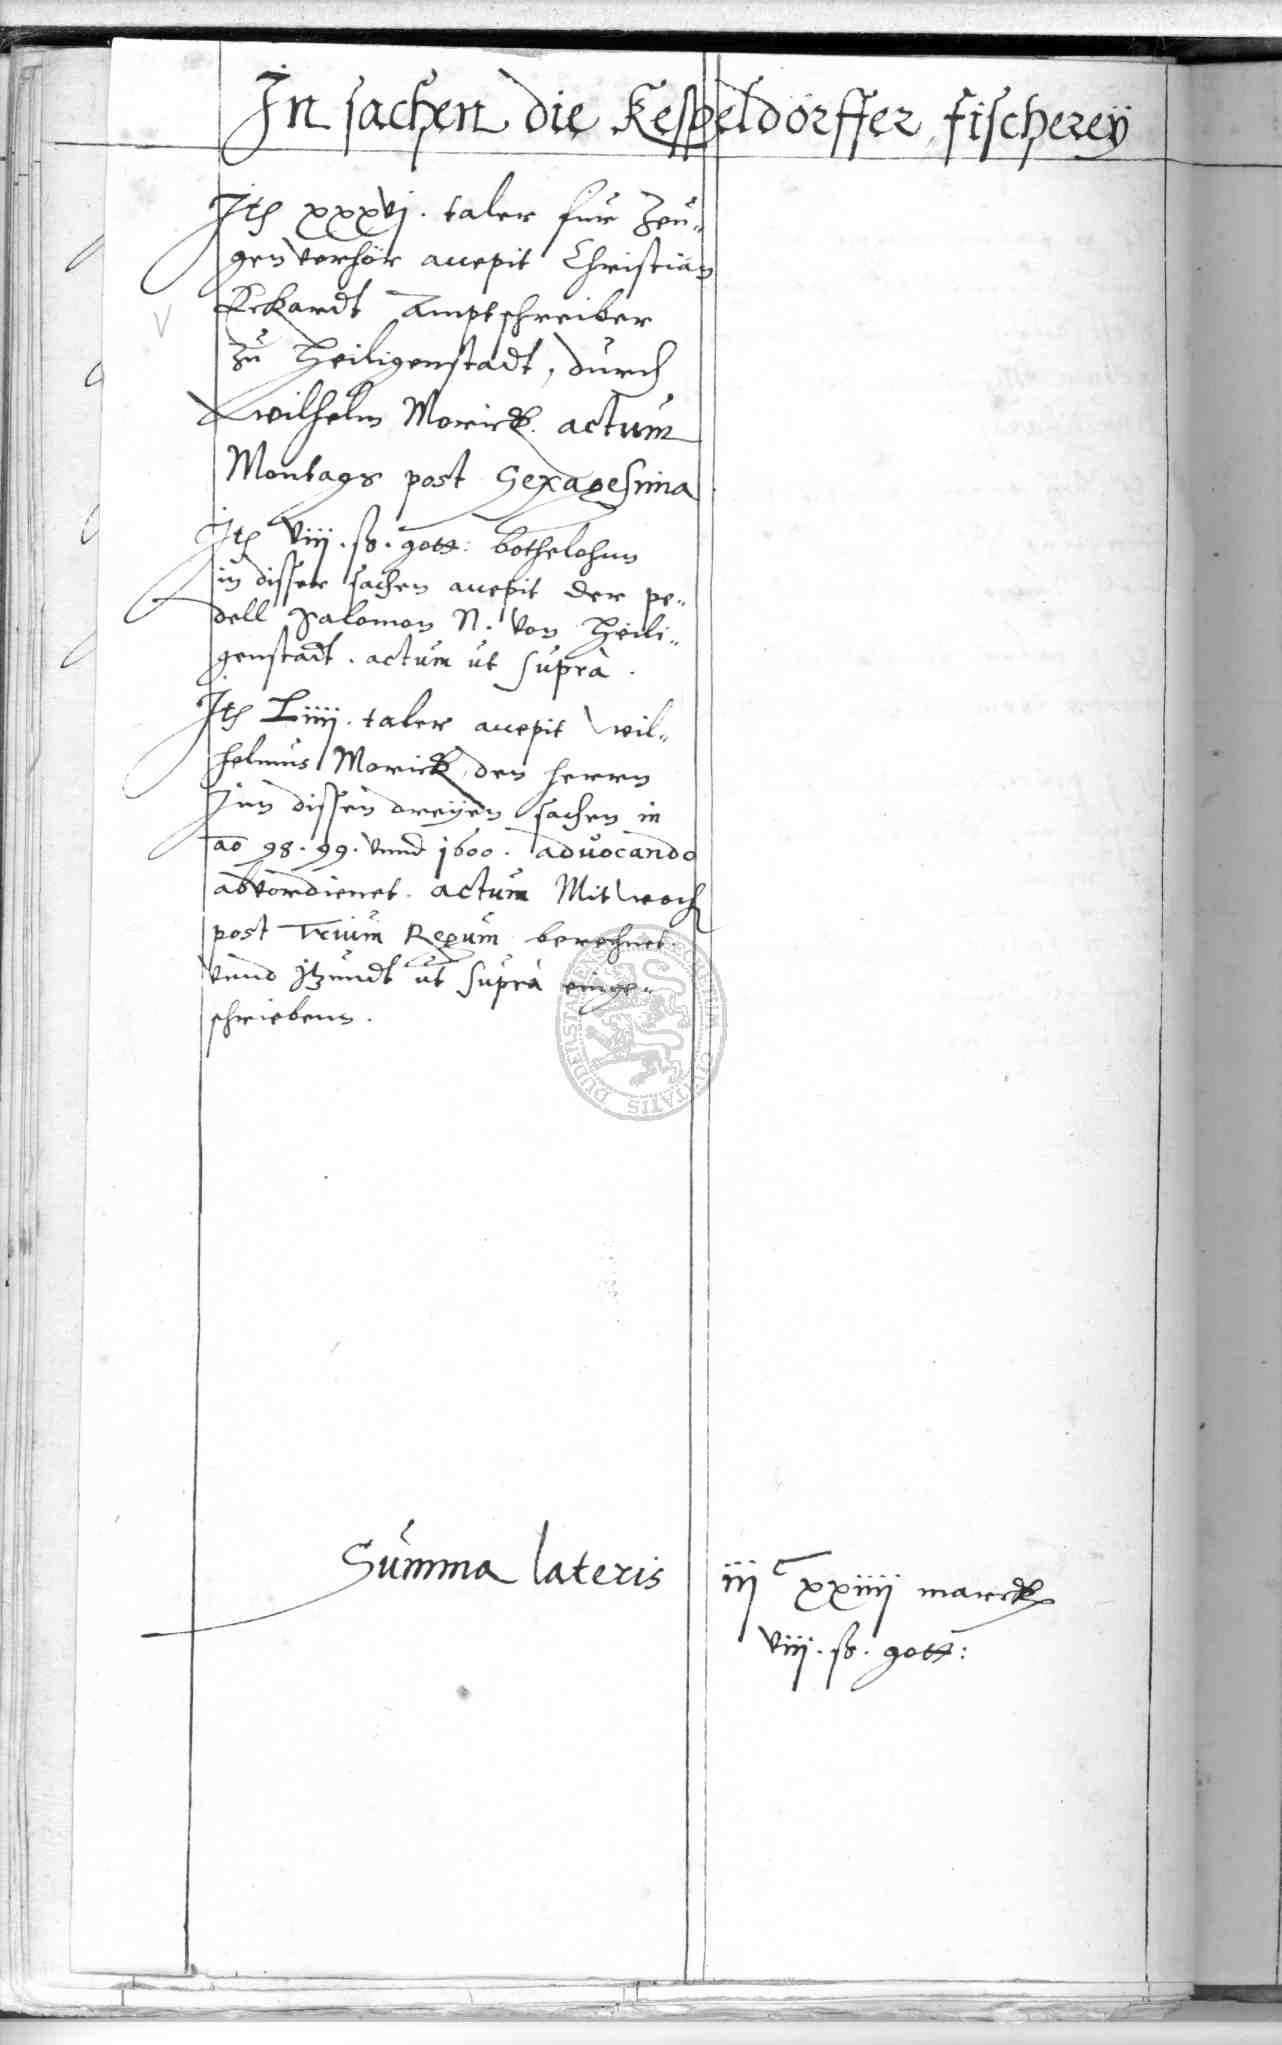 In sachen die Kespeldörffer fischereÿ
Itt xxxvj. taler für Zeu„
gen verhör accepit Christian
Eckardt Amptschreiber
zu Heiligenstadt, durch
Wilhelm Morick. actum
Montags post Sexagesima
Itt viij. ß. gott: bothelohnn
in disser sachen accepit der pe„
dell Salomon N. von Heili„
genstadt. actum ut suprà.
Itt Liiij. taler accepit Wil„
helmus Morick, den herrn
Inn dissen dreÿen sachen in
ao 98. 99. vnnd 1600. advocando
abverdienet. actum Mitwoch
post Trium Regum berechnet
vnnd itzundt ut suprà einge„
schriebenn.
DUDERSTADENSIS CIVITATIS
Summa lateris iij c xxiiij marck
viij. ß. gott: